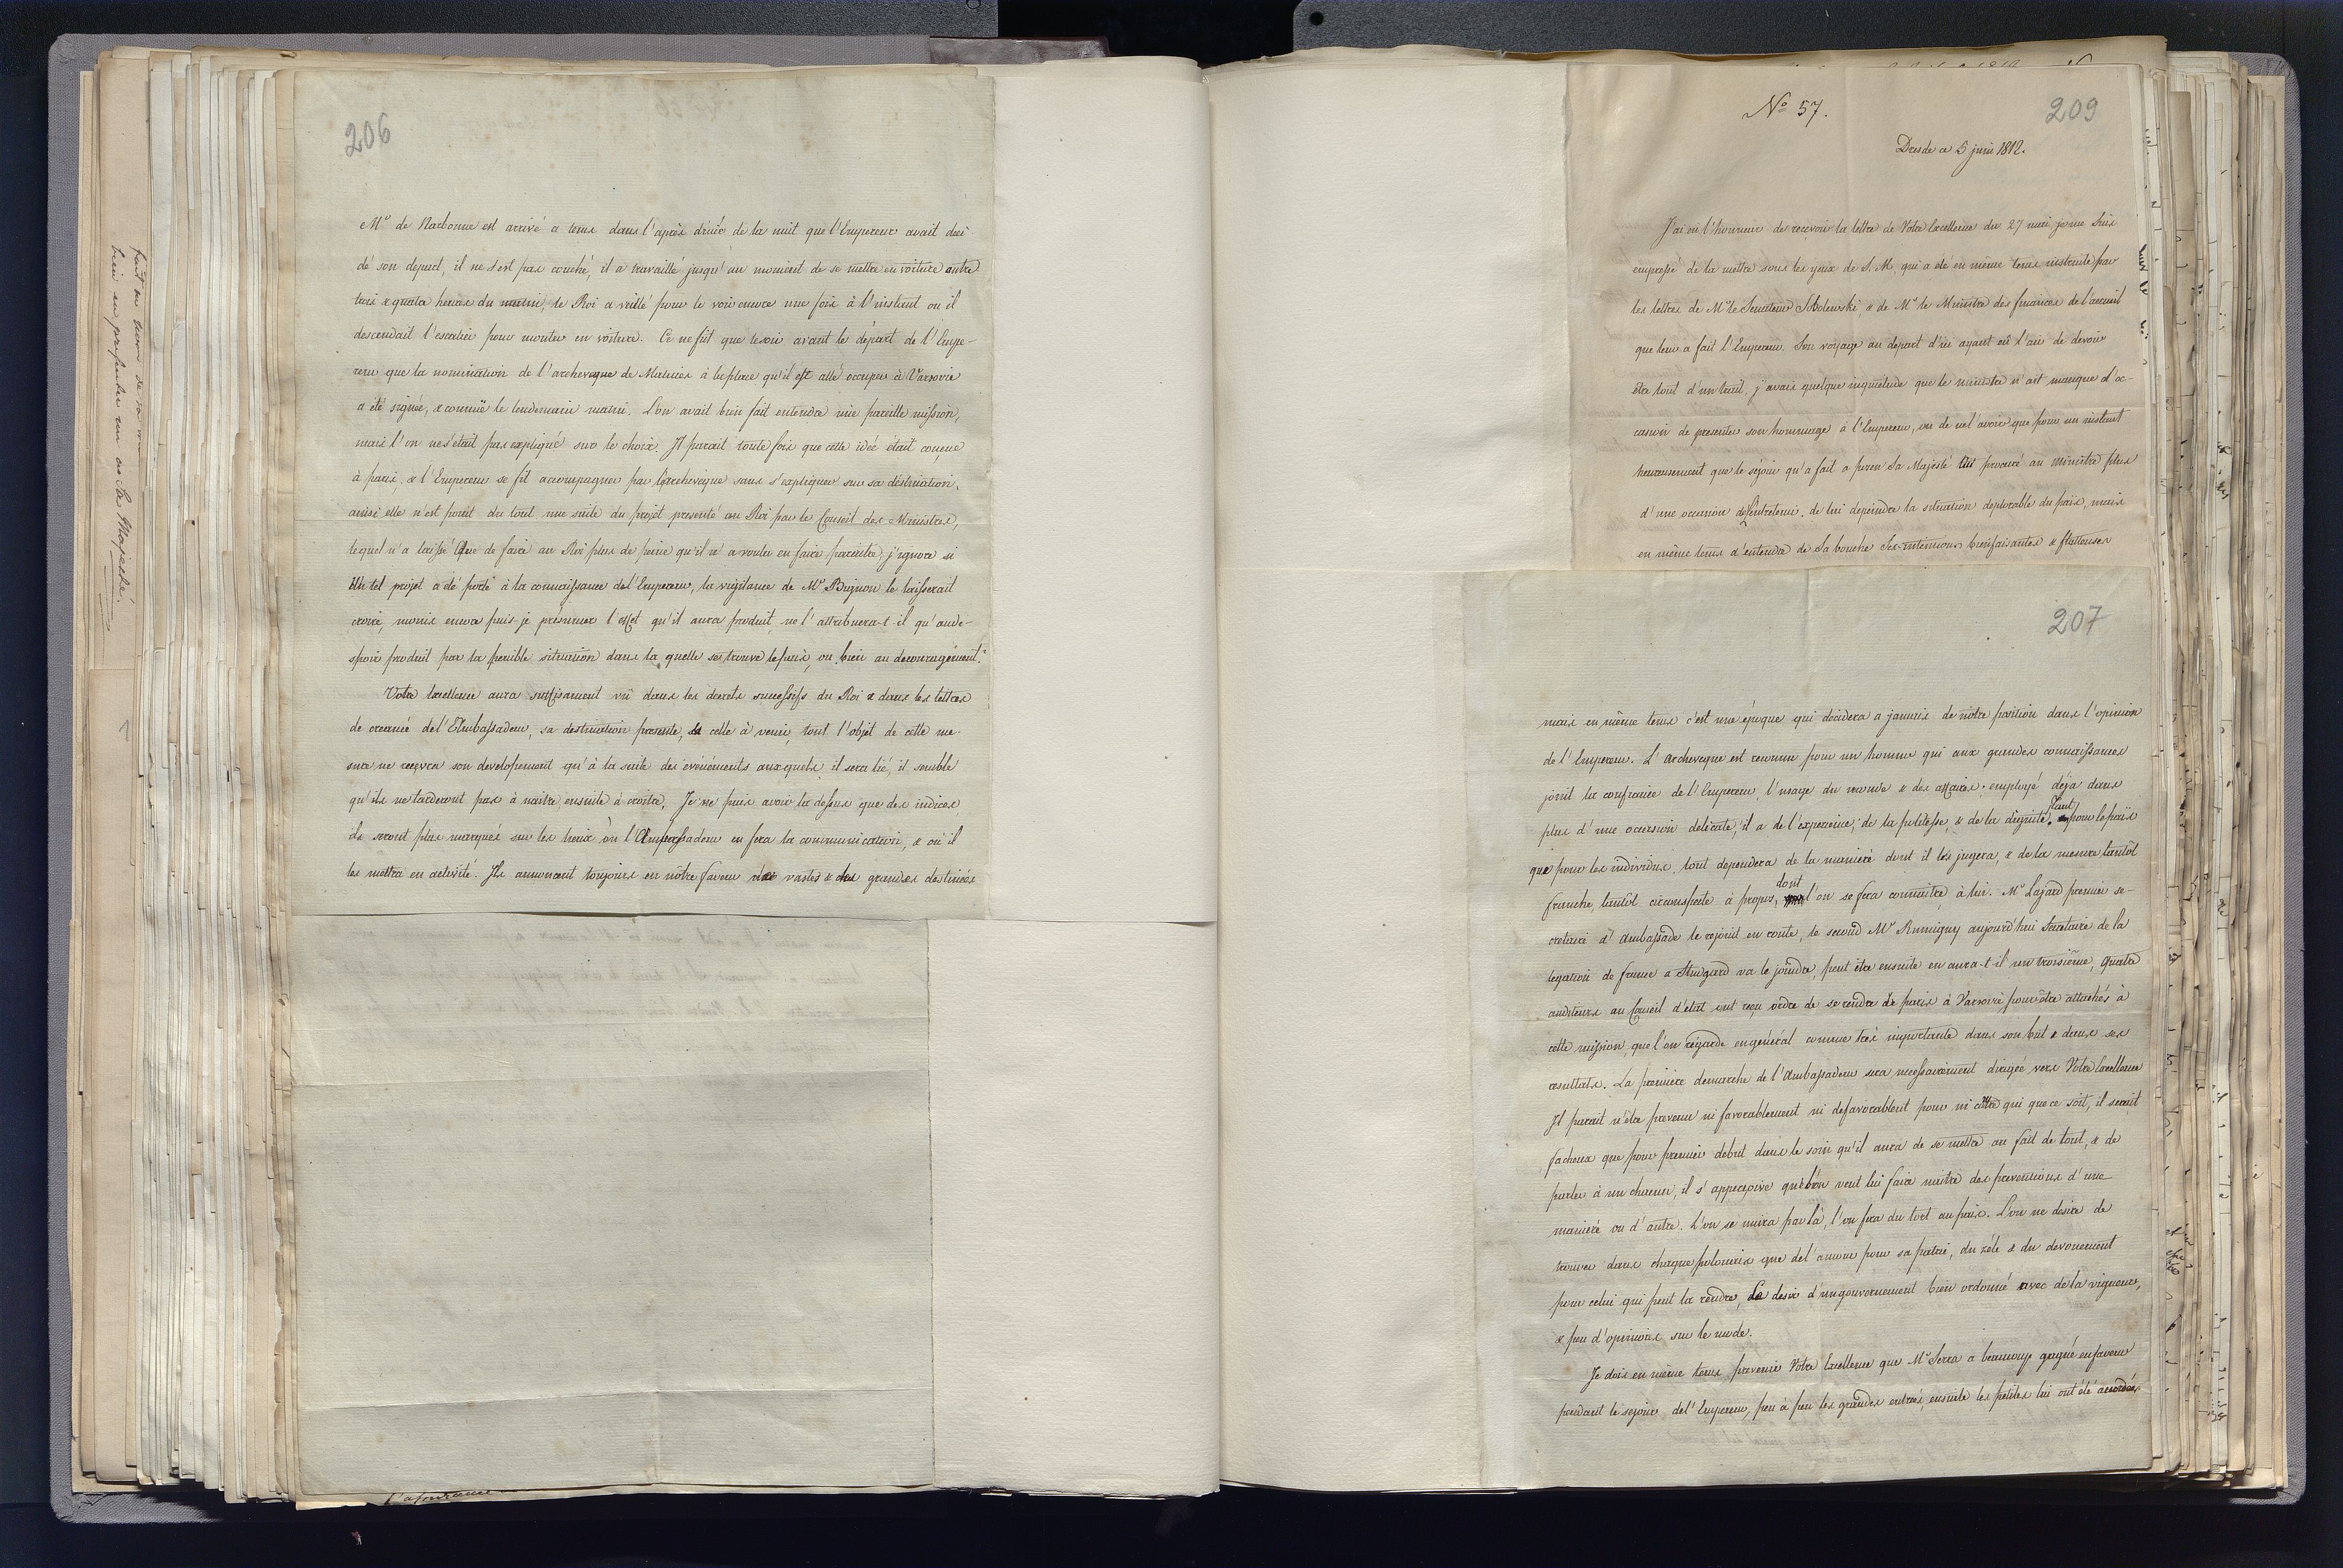 206
Mr de Narbonne est arrivé a tems dans l'après diner de la nuit que l'Empereur avait deci
dé son depart, il ne s'est pas couché, il a travaillé jusqu'au moment de se mettre en voiture entre
trois & quatre heures du matin, le Roi a veillé pour le voir encore une fois à l'instant ou il
descendait l'escalier pour monter en voiture. Ce ne fut que le soir avant le départ de l'Empe-
reur que la nomination de l'archeveque de Malines à la place qu'il est allé occuper à Varsovie
a été signée, & connuë le lendemain matin. L'on avait bien fait entendre une pareille mission,
mais l'on ne s'était pas expliqué sur le choix. Il parait toute fois que cette idée était conçue
à paris, & l'Empereur se fit accompagner par l'archeveque sans s'expliquer sur sa destination,
ainsi elle n'est point du tout une suite du projet presenté au Roi par le Conseil des Ministres,
lequel n'a laissé que de faire au Roi plus de peine qu'il n'a voulu en faire paraitre, j'ignore si
un tel projet a été porté à la connaissance de l'Empereur, la vigilance de Mr Bignon le laisserait
croire, moins encore puis-je présumer l'effet qu'il aura produit, ne l'attribuera-t-il qu'au de-
spoir produit par la penible situation dans la quelle se trouve le païs, ou bien au decouragement?
Votre Excellence aura suffisament vû dans les decrets successifs du Roi & dans les lettres
de creance de l'Embassadeur, sa destination presente, & celle à venir, tout l'objet de cette me-
sure ne reçevra son developement qu'à la suite des évènements auxquels il sera lié, il semble
qu'ils ne tarderont pas à naitre, ensuite à croitre. Je ne puis avoir la dessus que des indices,
ils seront plus marqués sur les lieux où l'Ambassadeur en fera la communication, & où il
les mettra en activité. Ils annoncent toujours en nôtre faveur des vastes & des grandes destinées
bien en presenter un au Sa Majesté.
No 57.
209
Dresde ce 5 juin 1812.
J'ai eû l'honneur de reçevoir la lettre de Votre Excellence du 27 mai, je me suis
empressé de la mettre sous les yeux de S. M. qui a été en même tems instruite par
les lettres de Mr le Senateur Sobolewski & de Mr le Ministre des finances de l'accueil
que leur a fait l'Empereur. Son voyage au depart d'ici ayant eû l'air de devoir
être tout d'un trait, j'avais quelque inquietude que le ministre n'ait manqué d'oc-
casion de presenter son hommage à l'Empereur, ou de ne l'avoir que pour un instant
heureusement que le séjour qu'a fait a posen Sa Majesté ait procuré au ministre plus
d'une occasion de l'entretenir, de lui depeindre la situation deplorable du païs, mais
en même tems d'entendre de Sa bouche Ses intentions bienfaisantes & flatteuses
207
mais en même tems c'est une époque qui decidera a jamais de nôtre position dans l'opinion
de l'Empereur. L'archeveque est reconnu pour un homme qui aux grandes connaissances
joint la confiance de l'Empereur, l'usage du monde & des affaires, employé déja dans
plus d'une occasion delicate, il a de l'experience, de la politesse, & de la dignité. Tant pour le païs
que pour les individus, tout dependera de la maniere dont il les jugera, & de la mesure tantôt
franche, tantôt circonspecte à propos, dont l'on se fera connaitre à lui. Mr Lajard premier se-
cretaire d'Ambassade le rejoint en route, le second Mr Rumigny aujourd'hui Secretaire de la
legation de france a Studgard va le joindre, peut être ensuite en aura-t-il un troisième, quatre
auditeurs au Conseil d'état ont reçu ordre de se rendre de paris à Varsovie pour être attachés à
cette mission, que l'on regarde en général comme très importante dans son but & dans ses
resultats. La première demarche de l'Ambassadeur sera necessairement dirigée vers Votre Excellence
Il parait n'être prevenu ni favorablement ni defavorablent pour ni contre qui que ce soit, il serait
facheux que pour premier debut dans le soin qu'il aura de se mettre au fait de tout, & de
parler à un chacun, il s'apperçoive que l'on veut lui faire naitre des preventions d'une
manière ou d'autre. L'on se nuira par là, l'on fera du tort au païs. L'on ne desire de
trouver dans chaque polonais que de l'amour pour sa patrie, du zéle & du devouement
pour celui qui peut la rendre, Le desir d'un gouvernement bien ordonné avec de la vigueur,
& peu d'opinions sur le mode.
Je dois en même tems prevenir Votre Excellence que Mr Serra a beaucoup gagné en faveur
pendant le sejour de l'Empereur, peu à peu les grandes entrées, ensuite les petites lui ont été accordées,